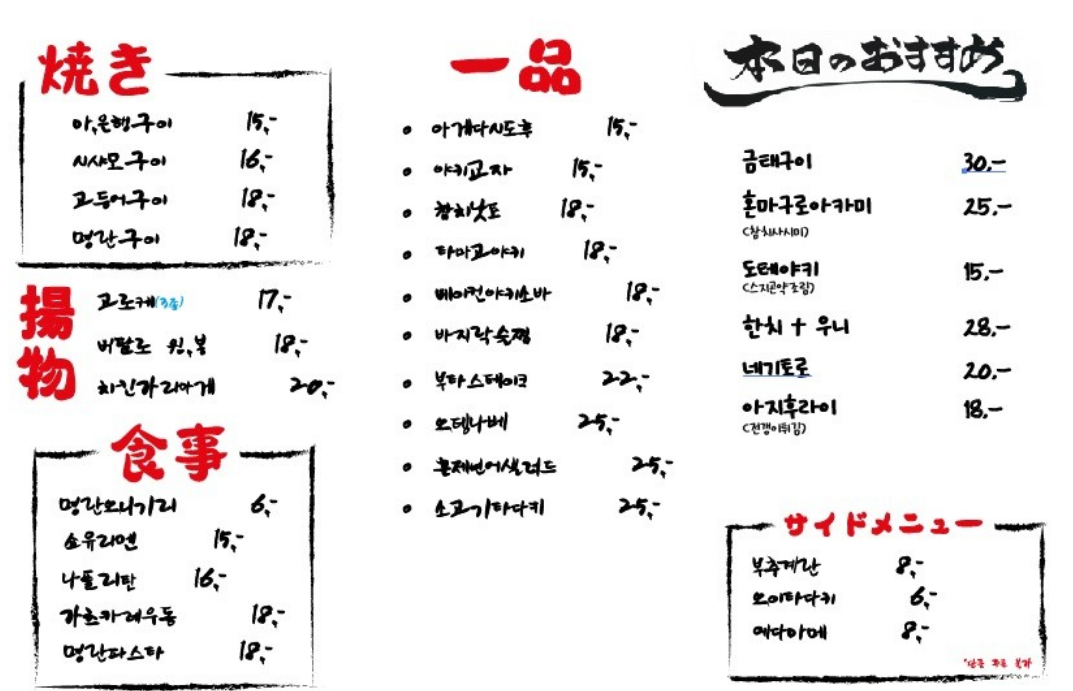 焼き
아,은행구이 15,-
시샤모구이 16,-
고등어구이 18,-
명란구이 18,-
揚物
고로케(3종) 17,-
버팔로 윙,봉 18,-
치킨가라아게 20,-
食事
명란오니기리 6,-
소유라멘 15,-
나폴리탄 16,-
가츠카레우동 18,-
명란파스타 18,-
一品
• 아게다시도후 15,-
• 야키교자 15,-
• 참치낫또 18,-
• 타마고야키 18,-
• 베이컨야키소바 18,-
• 바지락술찜 18,-
• 부타스테이크 22,-
• 오뎅나베 25,-
• 훈제연어샐러드 25,-
• 소고기타다키 25,-
本日のおすすめ
금태구이 30.-
혼마구로아카미 25.-
(참치사시미)
도테야키 15.-
(스지곤약조림)
한치 + 우니 28.-
네기토로 20.-
아지후라이 18.-
(전갱이튀김)
サイドメニュー
부추계란 8,-
오이타다키 6,-
에다마메 8,-
*단품 주문 불가